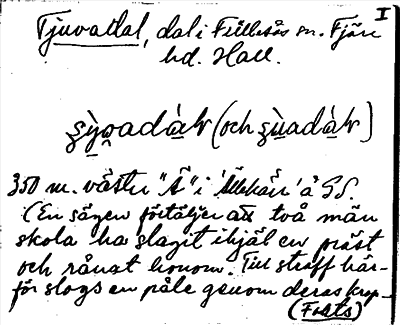 I
Tjuvadal, dal i Fillesås sn. Fjäre
hd. Hall.
(och
350 m. väster "Ä" i
(En sägen förtäljer att två män
skola ha slagit ihjäl en präst
och rånat honom. Till straff här-
för slogs en påle genom deras krop-
(Forts)